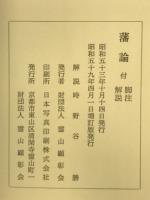 藩論 付 脚注
解説
昭和五十三年十月十四日発行
昭和五十九年四月一日増訂版発行
解説 時野谷勝
発行者 財団法人 霊山顕彰会
印刷所 日本写真印刷株式会社
発行所 京都市東山区清閑寺霊山町一
財団法人 霊山顕彰会